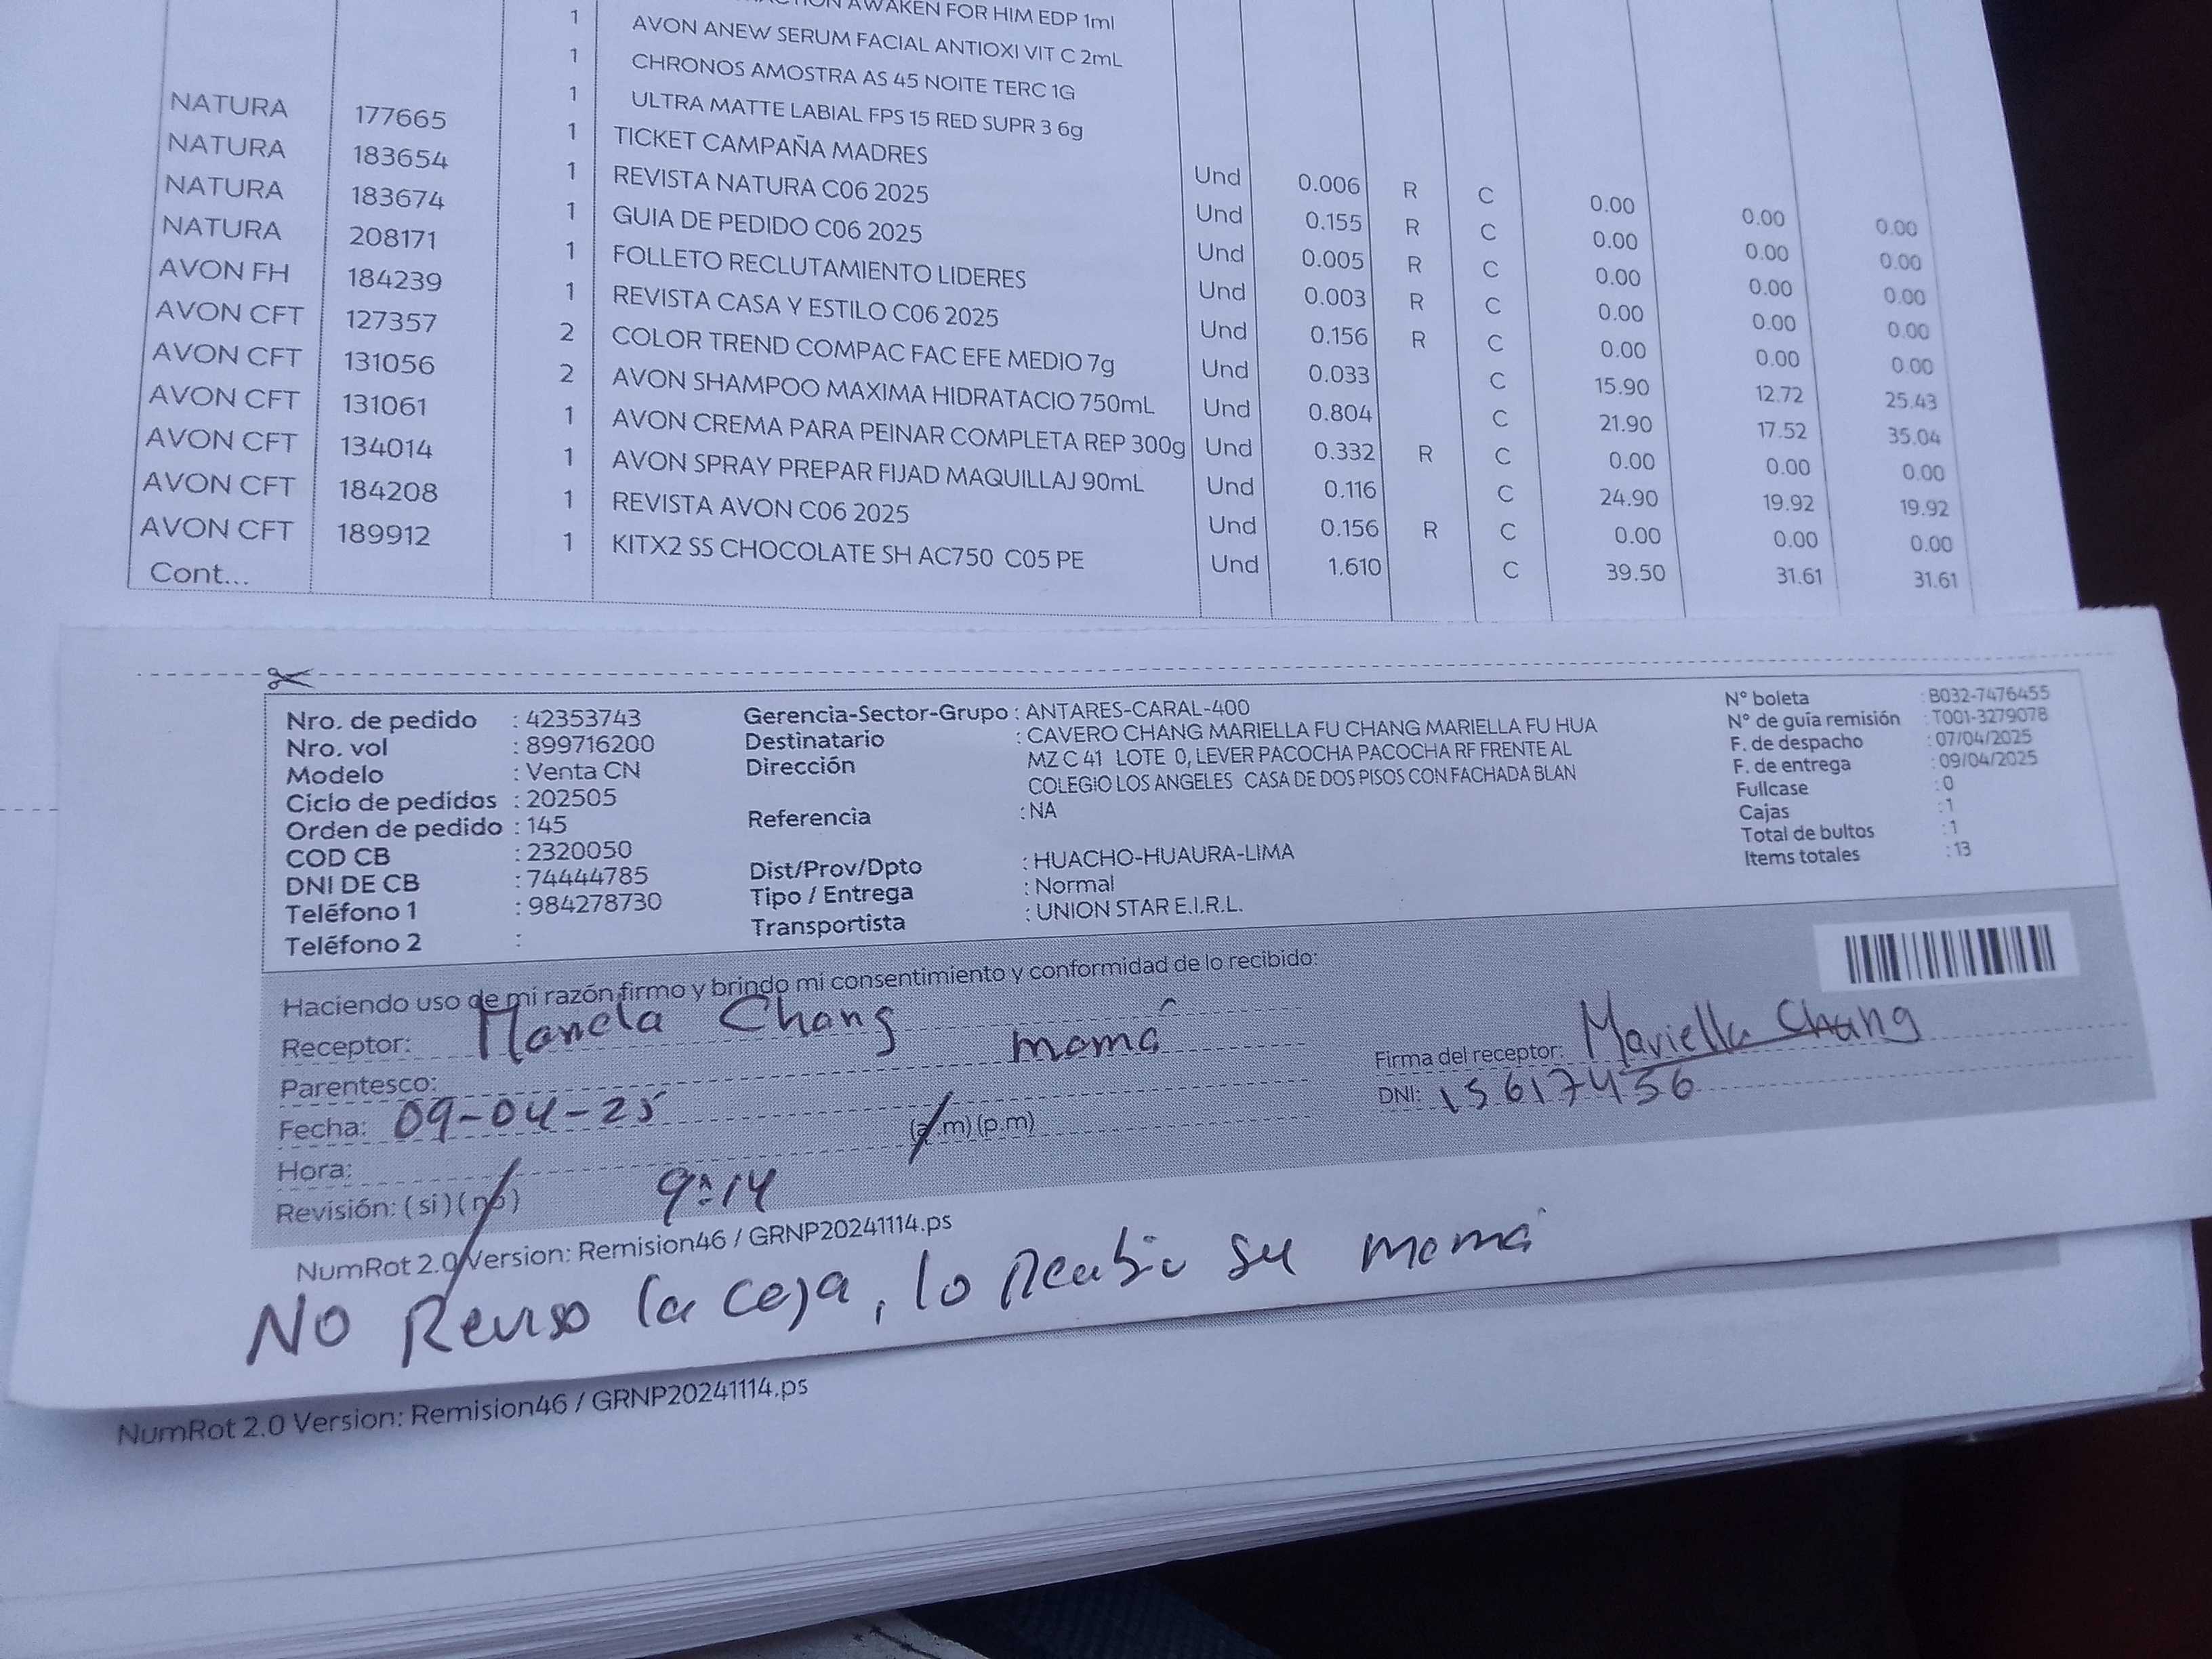 AWAKEN FOR HIM EDP 1ml
1 AVON ANEW SERUM FACIAL ANTIOXI VIT C 2mL
1 CHRONOS AMOSTRA AS 45 NOITE TERC 1G
1 ULTRA MATTE LABIAL FPS 15 RED SUPR 3 6g
NATURA 177665 1 TICKET CAMPAÑA MADRES Und 0.006 R C 0.00 0.00 0.00
NATURA 183654 1 REVISTA NATURA C06 2025 Und 0.155 R C 0.00 0.00 0.00
NATURA 183674 1 GUIA DE PEDIDO C06 2025 Und 0.005 R C 0.00 0.00 0.00
NATURA 208171 1 FOLLETO RECLUTAMIENTO LIDERES Und 0.003 R C 0.00 0.00 0.00
AVON FH 184239 1 REVISTA CASA Y ESTILO C06 2025 Und 0.156 R C 0.00 0.00 0.00
AVON CFT 127357 2 COLOR TREND COMPAC FAC EFE MEDIO 7g Und 0.033 C 15.90 12.72 25.43
AVON CFT 131056 2 AVON SHAMPOO MAXIMA HIDRATACIO 750mL Und 0.804 C 21.90 17.52 35.04
AVON CFT 131061 1 AVON CREMA PARA PEINAR COMPLETA REP 300g Und 0.332 R C 0.00 0.00 0.00
AVON CFT 134014 1 AVON SPRAY PREPAR FIJAD MAQUILLAJ 90mL Und 0.116 C 24.90 19.92 19.92
AVON CFT 184208 1 REVISTA AVON C06 2025 Und 0.156 R C 0.00 0.00 0.00
AVON CFT 189912 1 KITX2 SS CHOCOLATE SH AC750 C05 PE Und 1.610 C 39.50 31.61 31.61
Cont...
Nro. de pedido : 42353743
Nro. vol : 899716200
Modelo : Venta CN
Ciclo de pedidos : 202505
Orden de pedido : 145
COD CB : 2320050
DNI DE CB : 74444785
Teléfono 1 : 984278730
Teléfono 2 :
Gerencia-Sector-Grupo : ANTARES-CARAL-400
Destinatario : CAVERO CHANG MARIELLA FU CHANG MARIELLA FU HUA
Dirección MZ C 41 LOTE 0, LEVER PACOCHA PACOCHA RF FRENTE AL
COLEGIO LOS ANGELES CASA DE DOS PISOS CON FACHADA BLAN
Referencia : NA
Dist/Prov/Dpto : HUACHO-HUAURA-LIMA
Tipo / Entrega : Normal
Transportista : UNION STAR E.I.R.L.
N° boleta : B032-7476455
N° de guía remisión : T001-3279078
F. de despacho : 07/04/2025
F. de entrega : 09/04/2025
Fullcase : 0
Cajas : 1
Total de bultos : 1
Items totales : 13
Haciendo uso de mi razón firmo y brindo mi consentimiento y conformidad de lo recibido:
Receptor: Chang
Parentesco: mamá
Fecha: 09-04-25 (a.m)(p.m)
Hora: 9:14
Revisión: (si)(no)
Firma del receptor: Mariella Chang
DNI: 15617456
NumRot 2.0 Version: Remision46 / GRNP20241114.ps
NO Reviso la caja, lo Recibio su mamá
NumRot 2.0 Version: Remision46 / GRNP20241114.ps